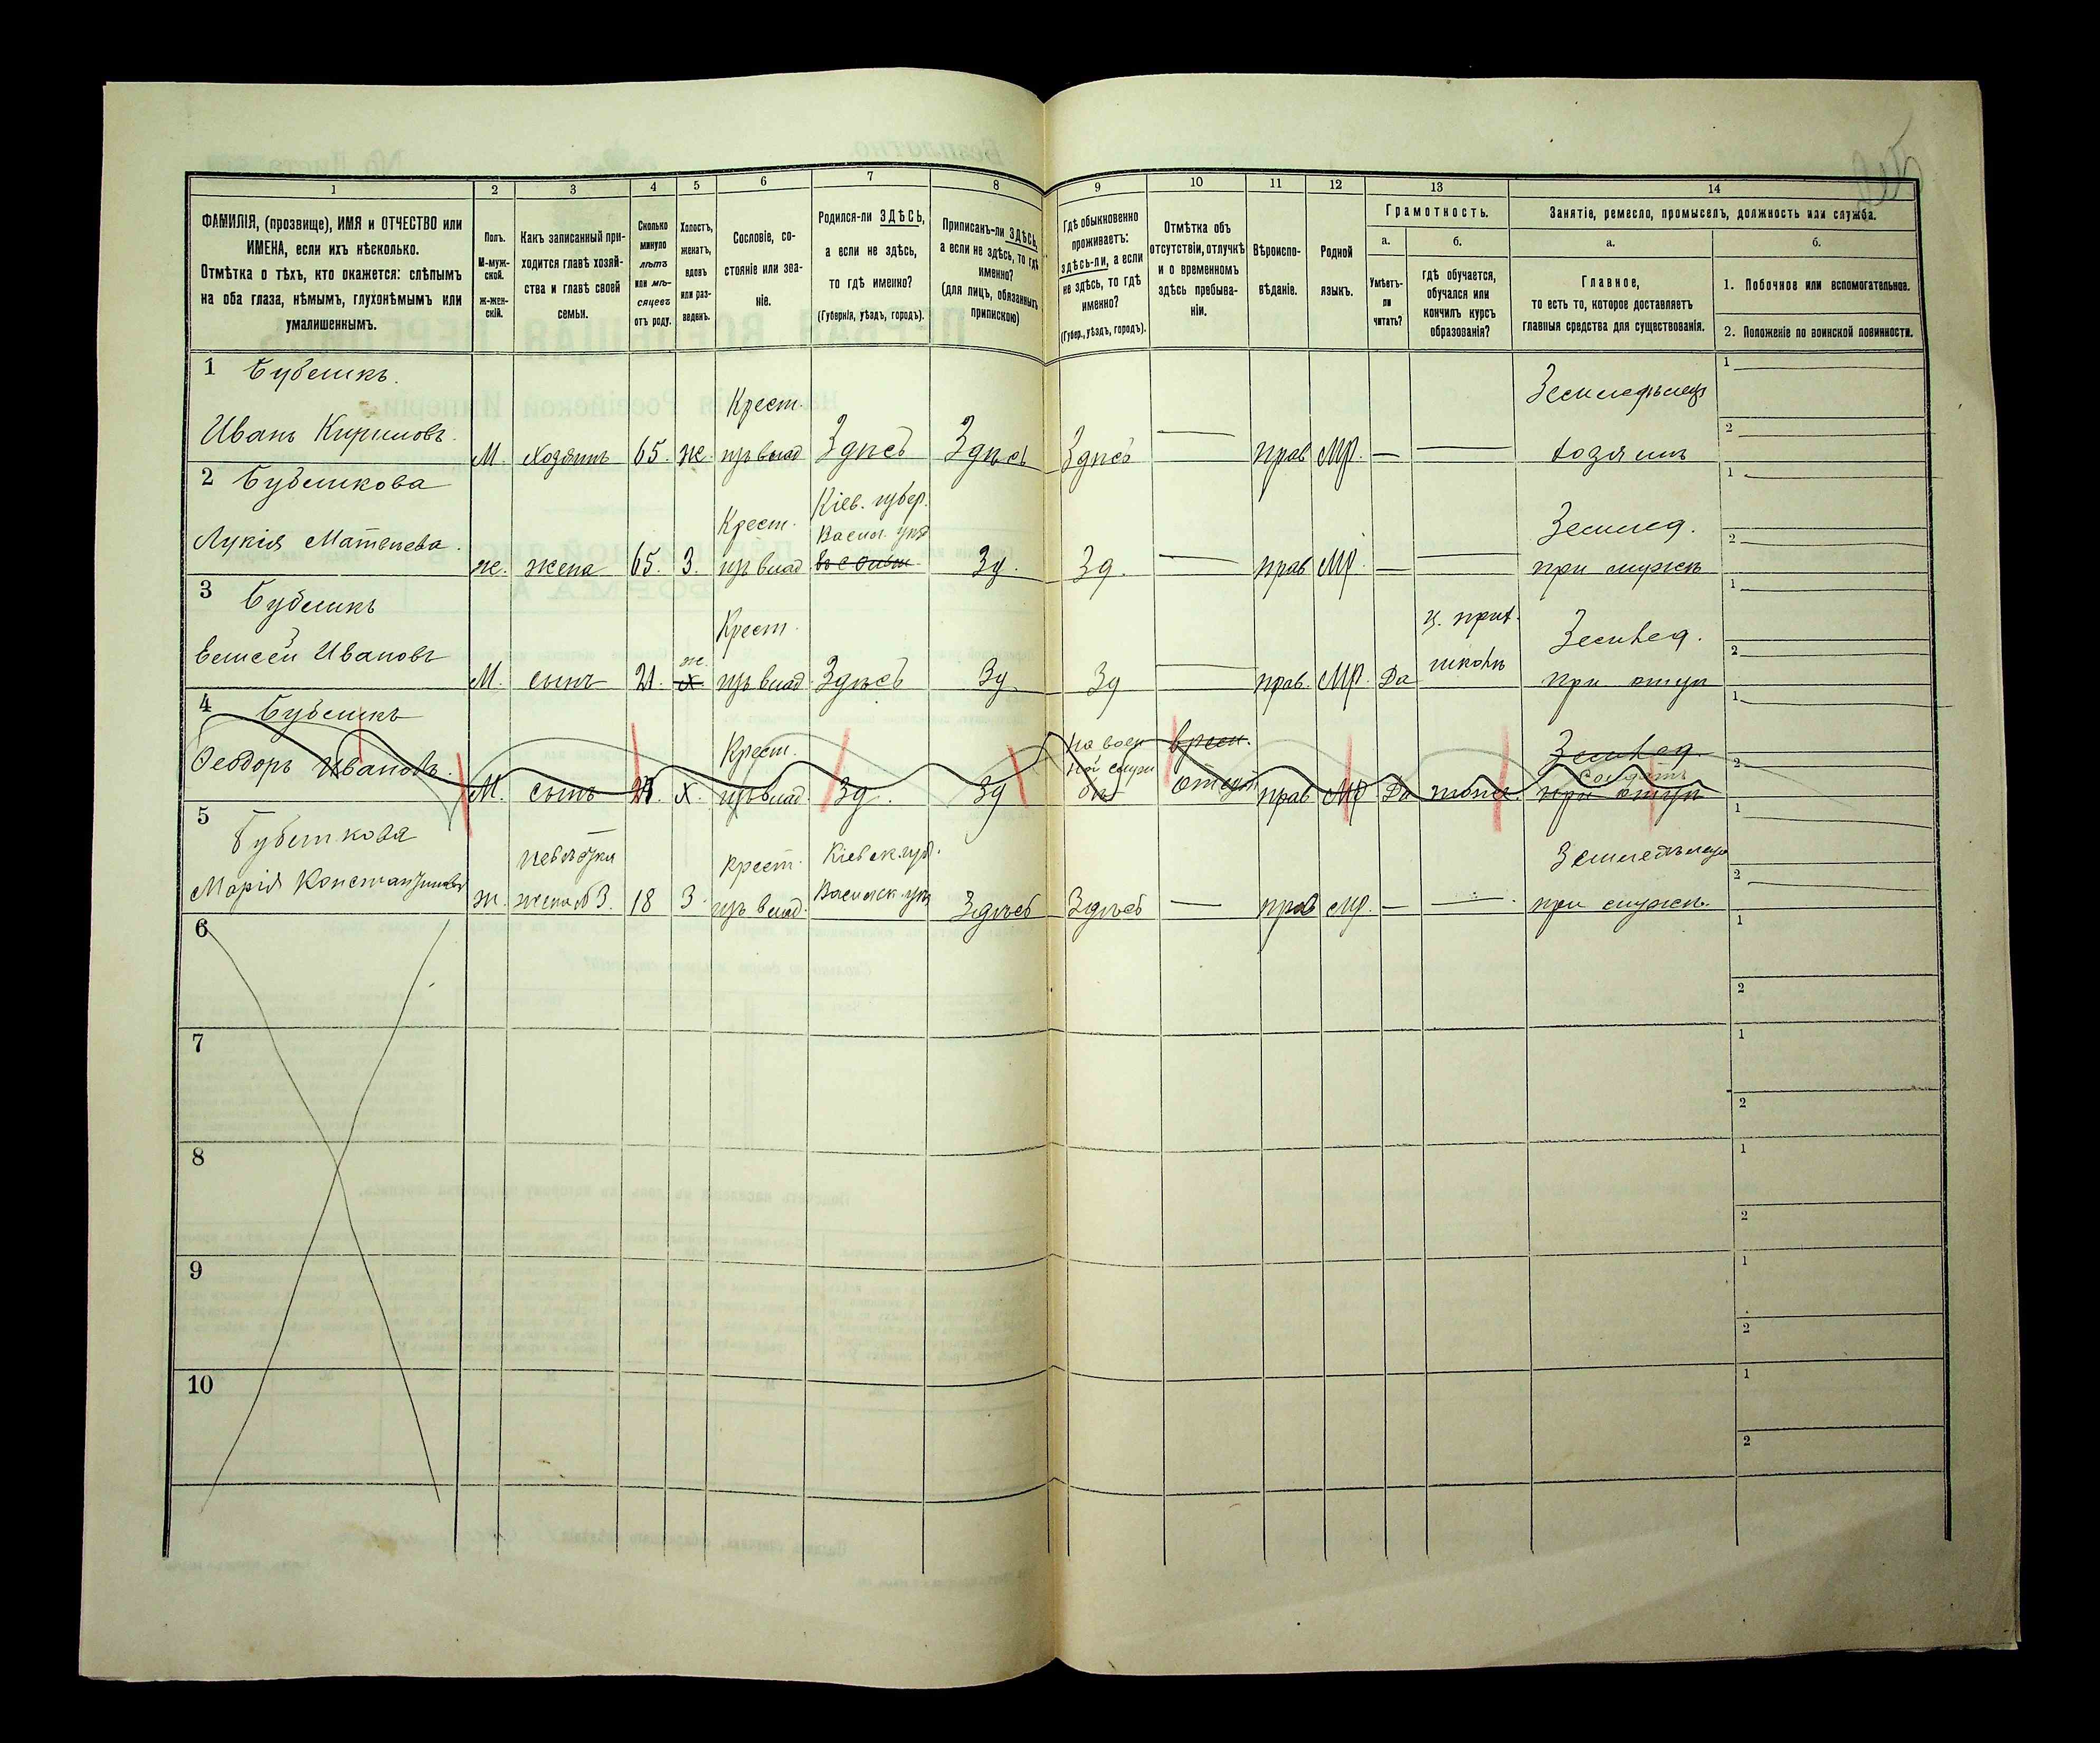 1
2
3
4
5
6
7
8
9
10
11
12
13
14
ФАМИЛІЯ, (прозвище), ИМЯ и ОТЧЕСТВО или
ИМЕНА, если ихъ нѣсколько.
Отмѣтка о тѣхъ, кто окажется: слѣпымъ
на оба глаза, нѣмымъ, глухонѣмымъ или
умалишеннымъ.
Полъ.
М-муж-
ской.
Ж-жен-
скій.
Какъ записанный при-
ходится главѣ хозяй-
ства и главѣ своей
семьи.
Сколько
минуло
лѣтъ
или мѣ-
сяцевъ
отъ роду.
Холостъ,
женатъ,
вдовъ
или раз-
веденъ.
Сословіе, со-
стояніе или зва-
ніе.
Родился-ли ЗДѢСЬ,
а если не здѣсь,
то гдѣ именно?
(Губернія, уѣздъ, городъ).
Приписанъ-ли ЗДѢСЬ,
а если не здѣсь, то гдѣ
именно?
(для лицъ, обязанныхъ
припискою)
Гдѣ обыкновенно
проживаетъ:
здѣсь-ли, а если
не здѣсь, то гдѣ
именно?
(Губер., уѣздъ, городъ).
Отмѣтка объ
отсутствіи, отлучкѣ
и о временномъ
здѣсь пребыва-
ніи.
Вѣроиспо-
вѣданіе.
Родной
языкъ.
Грамотность.
а.
Умѣетъ-
ли
читать?
б.
гдѣ обучается,
обучался или
кончилъ курсъ
образованія?
Занятіе, ремесло, промыселъ, должность или служба.
а.
Главное,
то есть то, которое доставляетъ
главныя средства для существованія.
б.
1. Побочное или вспомогательное.
2. Положеніе по воинской повинности.
1 Бубликъ.
Иванъ Кириловъ.
М. Хозяинъ 65. Ж.
Крест.
изъ влад
Здѣсь Здѣсь Здѣсь — прав МР. — —
Земледѣлец
хозяинъ
1
2
2 Бубликова
Лукія Матвѣева.
ж. жена 65. З.
Крест.
изъ влад
Кіев. губер.
Васил. уѣз
Зд. Зд. — прав МР. — —
Землед.
при мужѣ
1
2
3 Бубликъ
Елисей Ивановъ
М. сынъ 21. ж.
х
Крест.
изъ влад
Здѣсь Зд Зд — прав. МР. Да
ц. прих.
школѣ
Землед.
при отцѣ
1
2
4 Бубликъ
Ѳеодоръ Ивановъ.
М. сынъ х.
Крест.
изъ влад.
Зд. Зд
На воен
ной служ
бѣ
врем.
отсут
прав МР Да
Землед.
солдатъ
при отцѣ
1
2
5
Бубликова
Марія Константинова
ж.
невѣстка
жена №3. 18 З.
Крест.
изъ влад.
Кіевск. губ.
Васильк. уѣз
Здѣсь Здѣсь — прав МР. — —
Земледѣлец
при мужѣ.
1
2
6
1
2
7
1
2
8
1
2
9
1
2
10
1
2